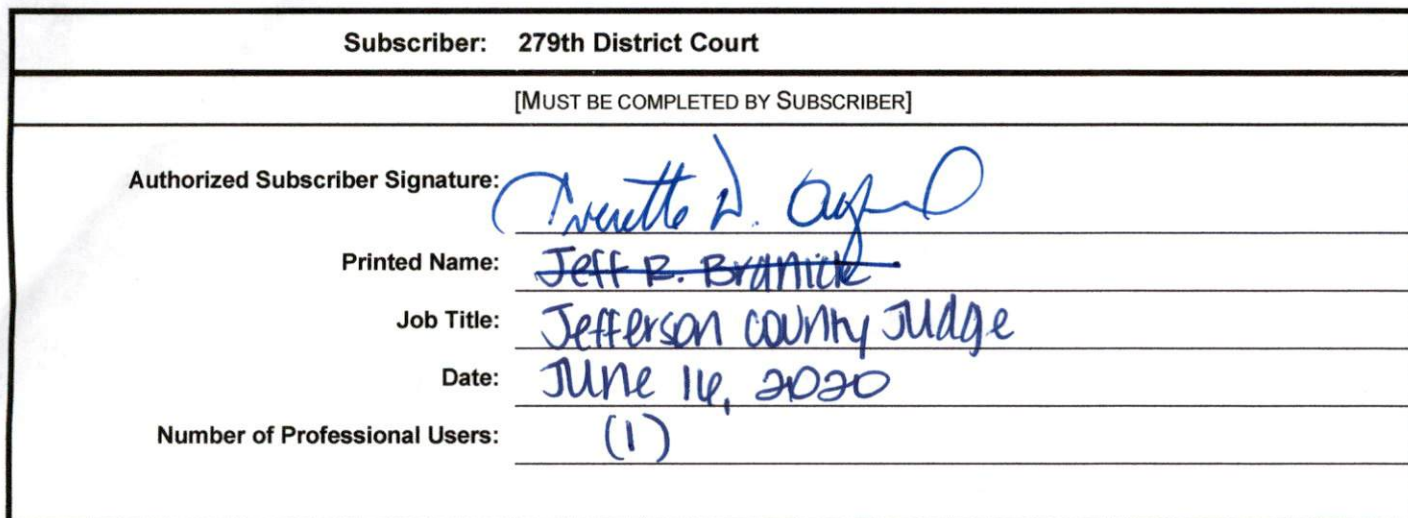 Subscriber: 279th District Court
[MUST BE COMPLETED BY SUBSCRIBER]
Authorized Subscriber Signature: Everette D. Alfred
Printed Name: Jeff R. Branick
Job Title: Jefferson County Judge
Date: June 16, 2020
Number of Professional Users: (1)